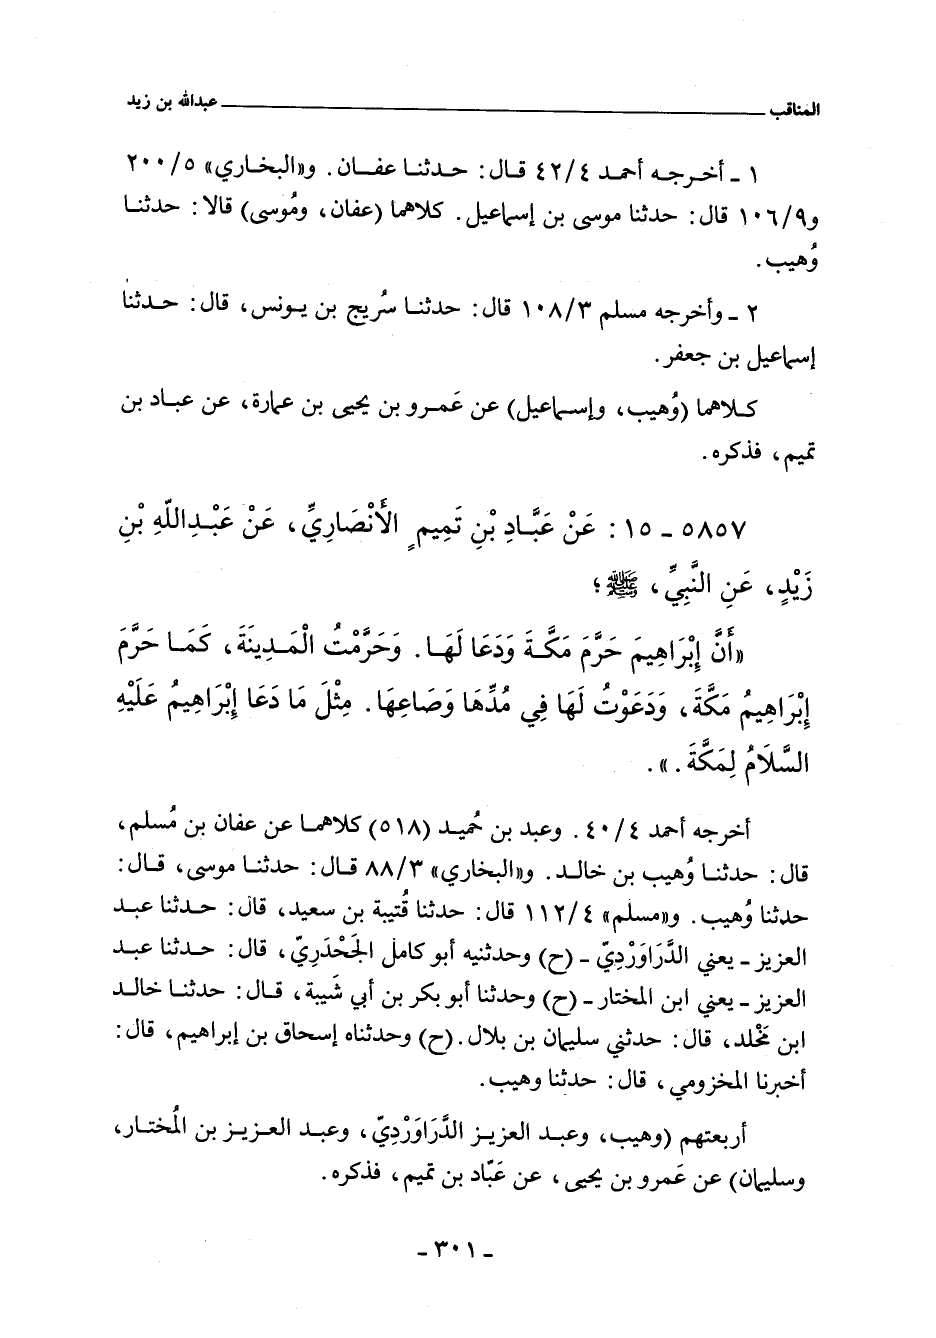 المناقب ــــــــــــــــــــــــــــــــــــــــ عبدالله بن زيد
١ - أخرجه أحمد ٤٢/٤ قال: حدثنا عفان. و«البخاري» ٢٠٠/٥
و١٠٦/٩ قال: حدثنا موسى بن إسماعيل. كلاهما (عفان، ومُوسى) قالا: حدثنا
وُهيب.
٢ - وأخرجه مسلم ١٠٨/٣ قال: حدثنا سُريج بن يونس، قال: حدثنا
إسماعيل بن جعفر.
كلاهما (وُهيب، وإسماعيل) عن عَمرو بن يحيى بن عمارة، عن عباد بن
تميم، فذكره.
٥٨٥٧ - ١٥ : عَنْ عَبَّادِ بْنِ تَمِيمٍ الأَنْصَارِيِّ، عَنْ عَبْدِاللّهِ بْنِ
زَيْدٍ، عَنِ النَّبِيِّ، ﷺ؛
«أَنَّ إِبْرَاهِيمَ حَرَّمَ مَكَّةَ وَدَعَا لَهَا. وَحَرَّمْتُ الْمَدِينَةَ، كَمَا حَرَّمَ
إِبْرَاهِيمُ مَكَّةَ، وَدَعَوْتُ لَهَا فِي مُدِّهَا وَصَاعِهَا. مِثْلَ مَا دَعَا إِبْرَاهِيمُ عَلَيْهِ
السَّلَامُ لِمَكَّةَ.».
أخرجه أحمد ٤٠/٤. وعبد بن حُميد (٥١٨) كلاهما عن عفان بن مُسلم،
قال: حدثنا وُهيب بن خالد. و«البخاري» ٨٨/٣ قال: حدثنا موسى، قال:
حدثنا وُهيب. و«مسلم» ١١٢/٤ قال: حدثنا قُتيبة بن سعيد، قال: حدثنا عبد
العزيز - يعني الدَّرَاوَرْدِيّ - (ح) وحدثنيه أبو كامل الجَحْدَريّ، قال: حدثنا عبد
العزيز - يعني ابن المختار - (ح) وحدثنا أبو بكر بن أبي شَيبة، قال: حدثنا خالد
ابن مَخْلد، قال: حدثني سليمان بن بلال. (ح) وحدثناه إسحاق بن إبراهيم، قال:
أخبرنا المخزومي، قال: حدثنا وهيب.
أربعتهم (وهيب، وعبد العزيز الدَّرَاوَرْدِيّ، وعبد العزيز بن المُختار،
وسليمان) عن عَمرو بن يحيى، عن عَبّاد بن تميم، فذكره.
- ٣٠١ -